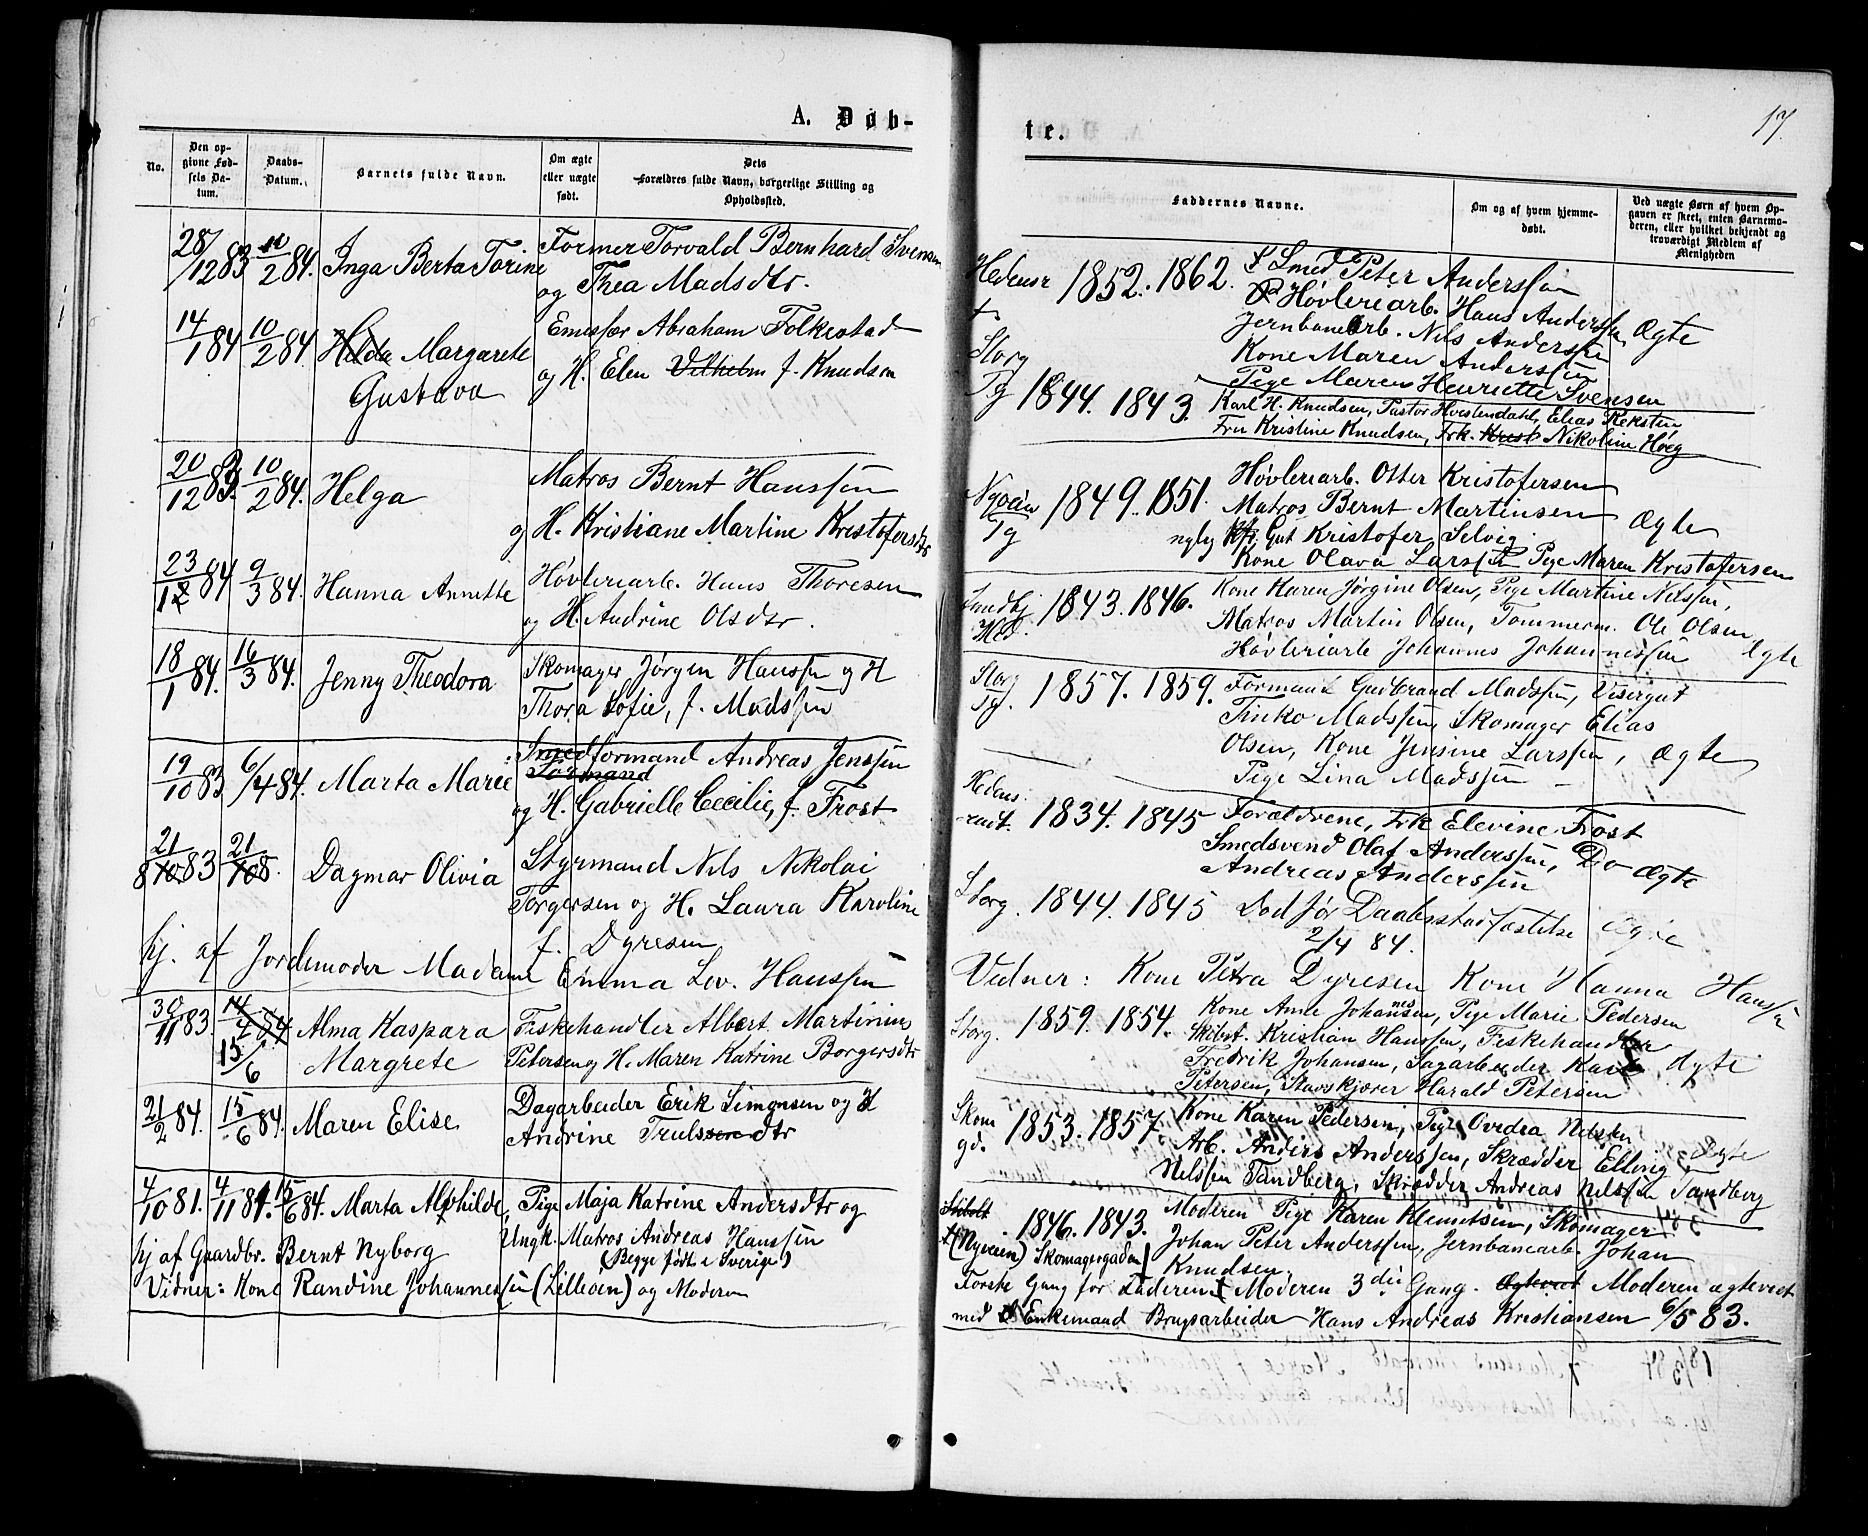 A. Døb-
No.
Den op-
givne Fød-
sels Da-
tum.
Daabs-
Datum.
Barnets fulde Navn.
Om ægte
eller uægte
født.
Dets
Forældres fulde Navn, borgerlige Stilling og
Opholdssted.
28/12 83 10/2 84. Inga Berta Torine
Former Torvald Bernhard Svensen
og Thea Madsdtr.
14/1 84 10/2 84 Hilda Margarete
Gustava
Abraham Folkestad
og H. Elen Vilhelm f. Knudsen
20/12 83. 10/2 84. Helga
Matros Bernt Hanssen
og H. Kristiane Martine Kristofersdtr
23/1 84 9/3 84. Hanna Annette
Høvleriarb. Hans Thoresen
og H. Andrine Olsdtr.
18/1 84. 16/3 84. Jenny Theodora
Skomager Jørgen Hanssen og H
Thora Sofie, f. Madssen
19/10 83 6/4 84. Marta Marie
Smedformand Andreas Jenssen
Formand
og H. Gabrielle Cecilie, f. Frost
21/8 83 21/8. Dagmar Olivia
Styrmand Nils Nikolai
Torgersen og H. Laura Karoline
f. Dyresen
hj. af Jordemoder Madame Emma Lov. Hanssen
30/11 83. 14/4 84 Alma Kaspara
15/6 Margrete
Fiskehandler Albert Martinius
Petersen og H. Maren Katrine Borgersdtr
21/2 84. 15/6 84. Maren Elise
Dagarbeider Erik Simonsen og H
Andrine Trulsdtr
4/10 81. 4/11 81. 15/6 84. Marta Mathilde,
Pige Maja Katrine Andersdtr og
Ungk. Matros Andreas Hanssen
(Begge født i Sverige)
hj af Gaardbr. Bernt Nyborg
Vidner: Kone Randine Johannessen (Lilleøen) og Moderen
te.
17.
Faddernes Navne.
Om og af hvem hjemme-
døbt.
Ved uægte Børn af hvem Op-
gaven er skeet, enten Barnemo-
deren, eller hvilket bekjendt og
troværdigt Medlem af
Menigheden
1852. 1862. Smed Peter Anderssen
Høvleriarb. Hans Anderssen
Jernbanearb. Nils Anderssen Ægte
Kone Maren Anderssen
Pige Maren Henriette Svensen
Storg
Tg 1844. 1843. Karl H. Knudsen, Pastor Hvistendahl, Elias Reksten
Fru Kristine Knudsen, Frk. Krest Nikoline Høeg
Høvleriarb. Otter Kristofersen
Tg 1849. 1851. Matros Bernt Martinsen Ægte
Gut Kristofer Selvig
Kone Olava Larssen Pige Maren Kristofersen
1843. 1846. Kone Karen Jørgine Olsen, Pige Martine Nelssen,
Matros Martin Olsen, Tømmerm. Ole Olsen
Høvleriarb Johannes Johannessen Ægte
Storg
Tg. 1857. 1859. Formand Gudbrand Madssen, Visergut
Tinko Madssen, Skomager Elias
Olsen, Kone Jensine Larssen, Ægte
Pige Lina Madssen
Hedens-
rudt. 1834. 1845 Forældrene, Frk Elevine Frost
Smedsvend Olaf Anderssen, Do
Andreas Anderssen Ægte
Storg. 1844. 1845 Død før Daabsstadfæstelse Ægte
2/4 84.
Vidner: Kone Petra Dyresen Kone Hanna Hanssen
Storg. 1859. 1854. Kone Anne Johannesen, Pige Marie Pedersen
Skibst. Kristian Hanssen, Fiskehandler
Fredrik Johansen, Sagarbeider Karl Ægte
Petersen, Stavskjører Harald Petersen
Skom
gd. 1853. 1857. Kone Karen Pedersen, Pige Ovedia Nelssen
Arb. Anders Anderssen, Skrædder Ellvig Ægte
Nelssen Tandberg, Skrædder Andreas Nelssen Tandberg
1846. 1843. Moderen Pige Karen Klemetsen, Skomager
(Nyveien) Skomagergaden Johan Peter Anderssen, Jernbanearb. Johan
Knudsen.
Første Gang for Faderen Moderen 3die Gang. Ægteviet Moderen ægteviet
med Enkemand Brugsarbeider Hans Andreas Kristiansen 6/5 83.